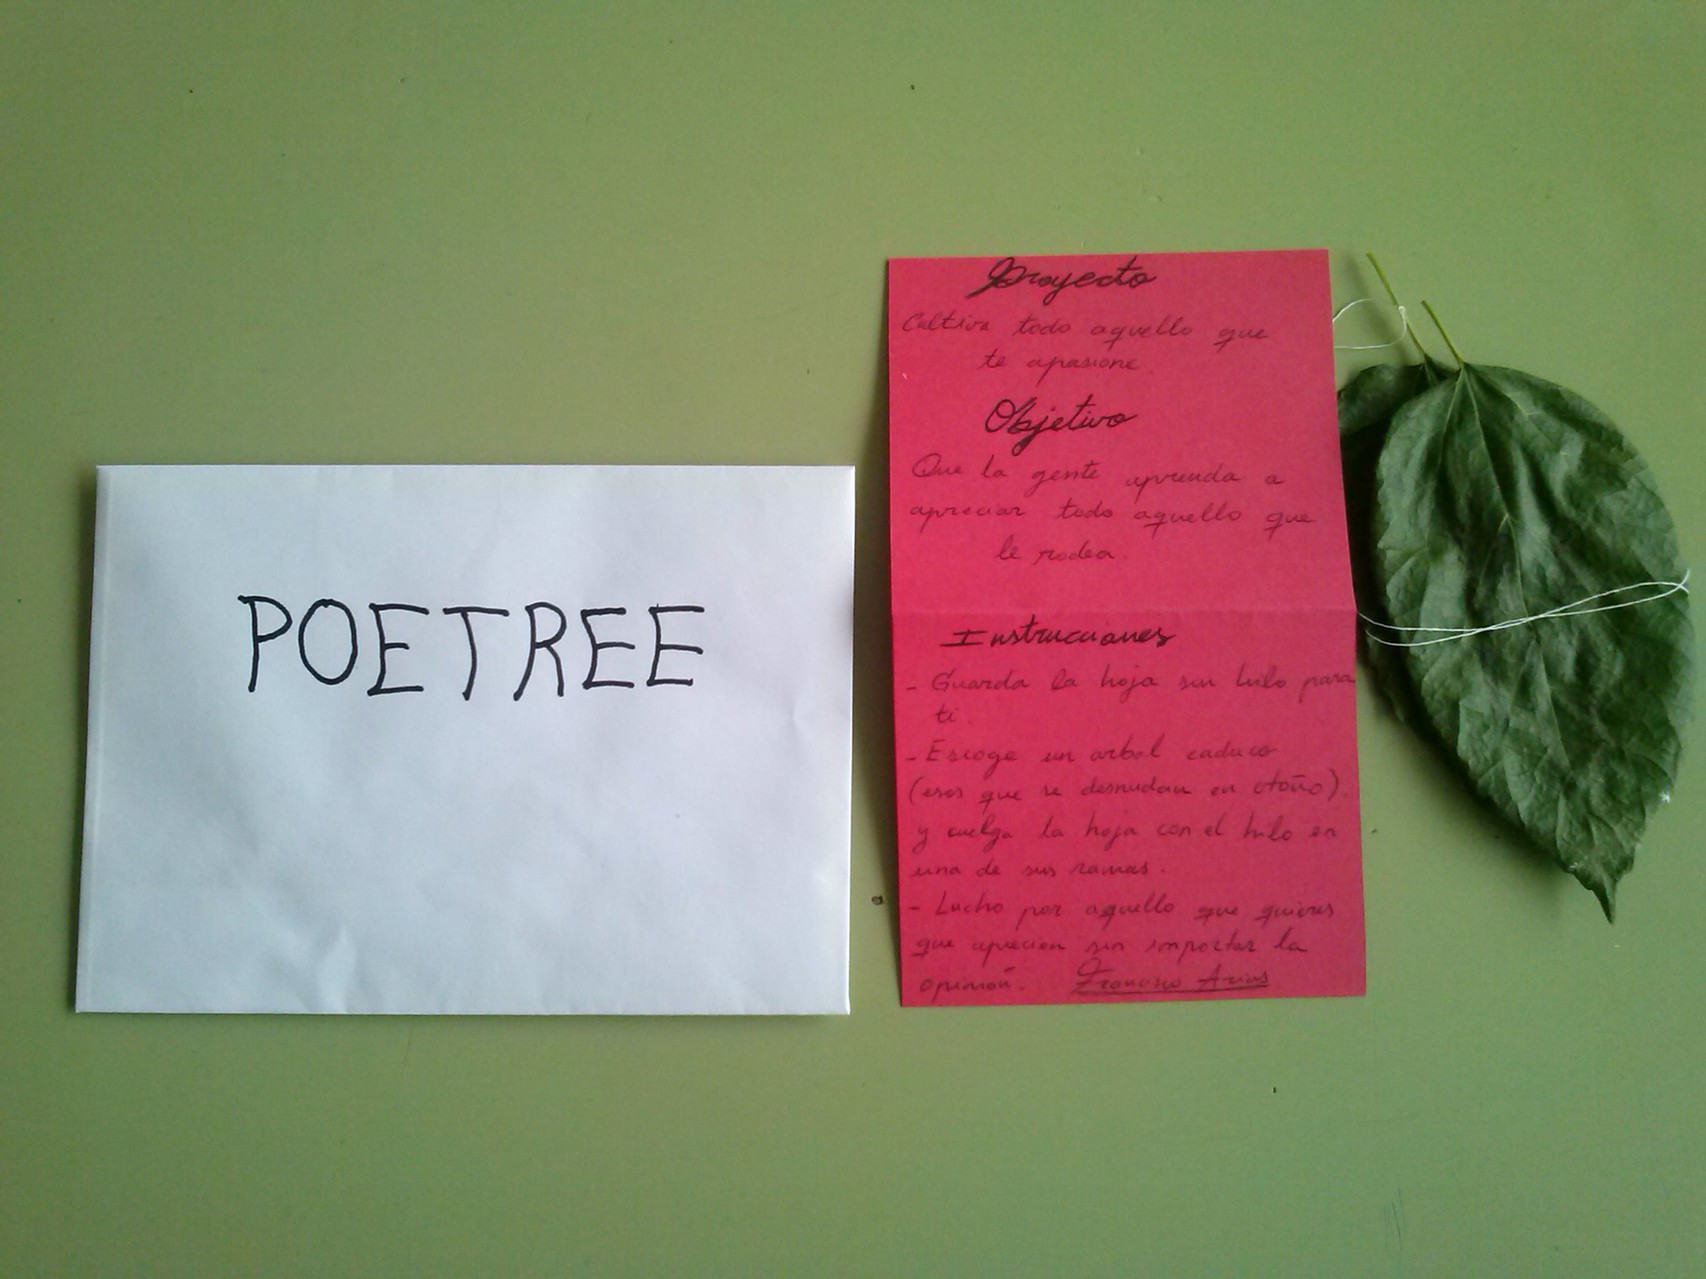 POETREE
Proyecto
Cultiva todo aquello que
te apasione.
Objetivo
Que la gente aprenda a
apreciar todo aquello que
le rodea.
Instrucciones
- Guarda la hoja sin hilo para
ti.
- Escoge un arbol caduco
(esos que se desnudan en otoño).
y cuelga la hoja con el hilo en
una de sus ramas.
- Lucha por aquello que quieres
que aprecien sin importar la
opinión. Francisco Arias